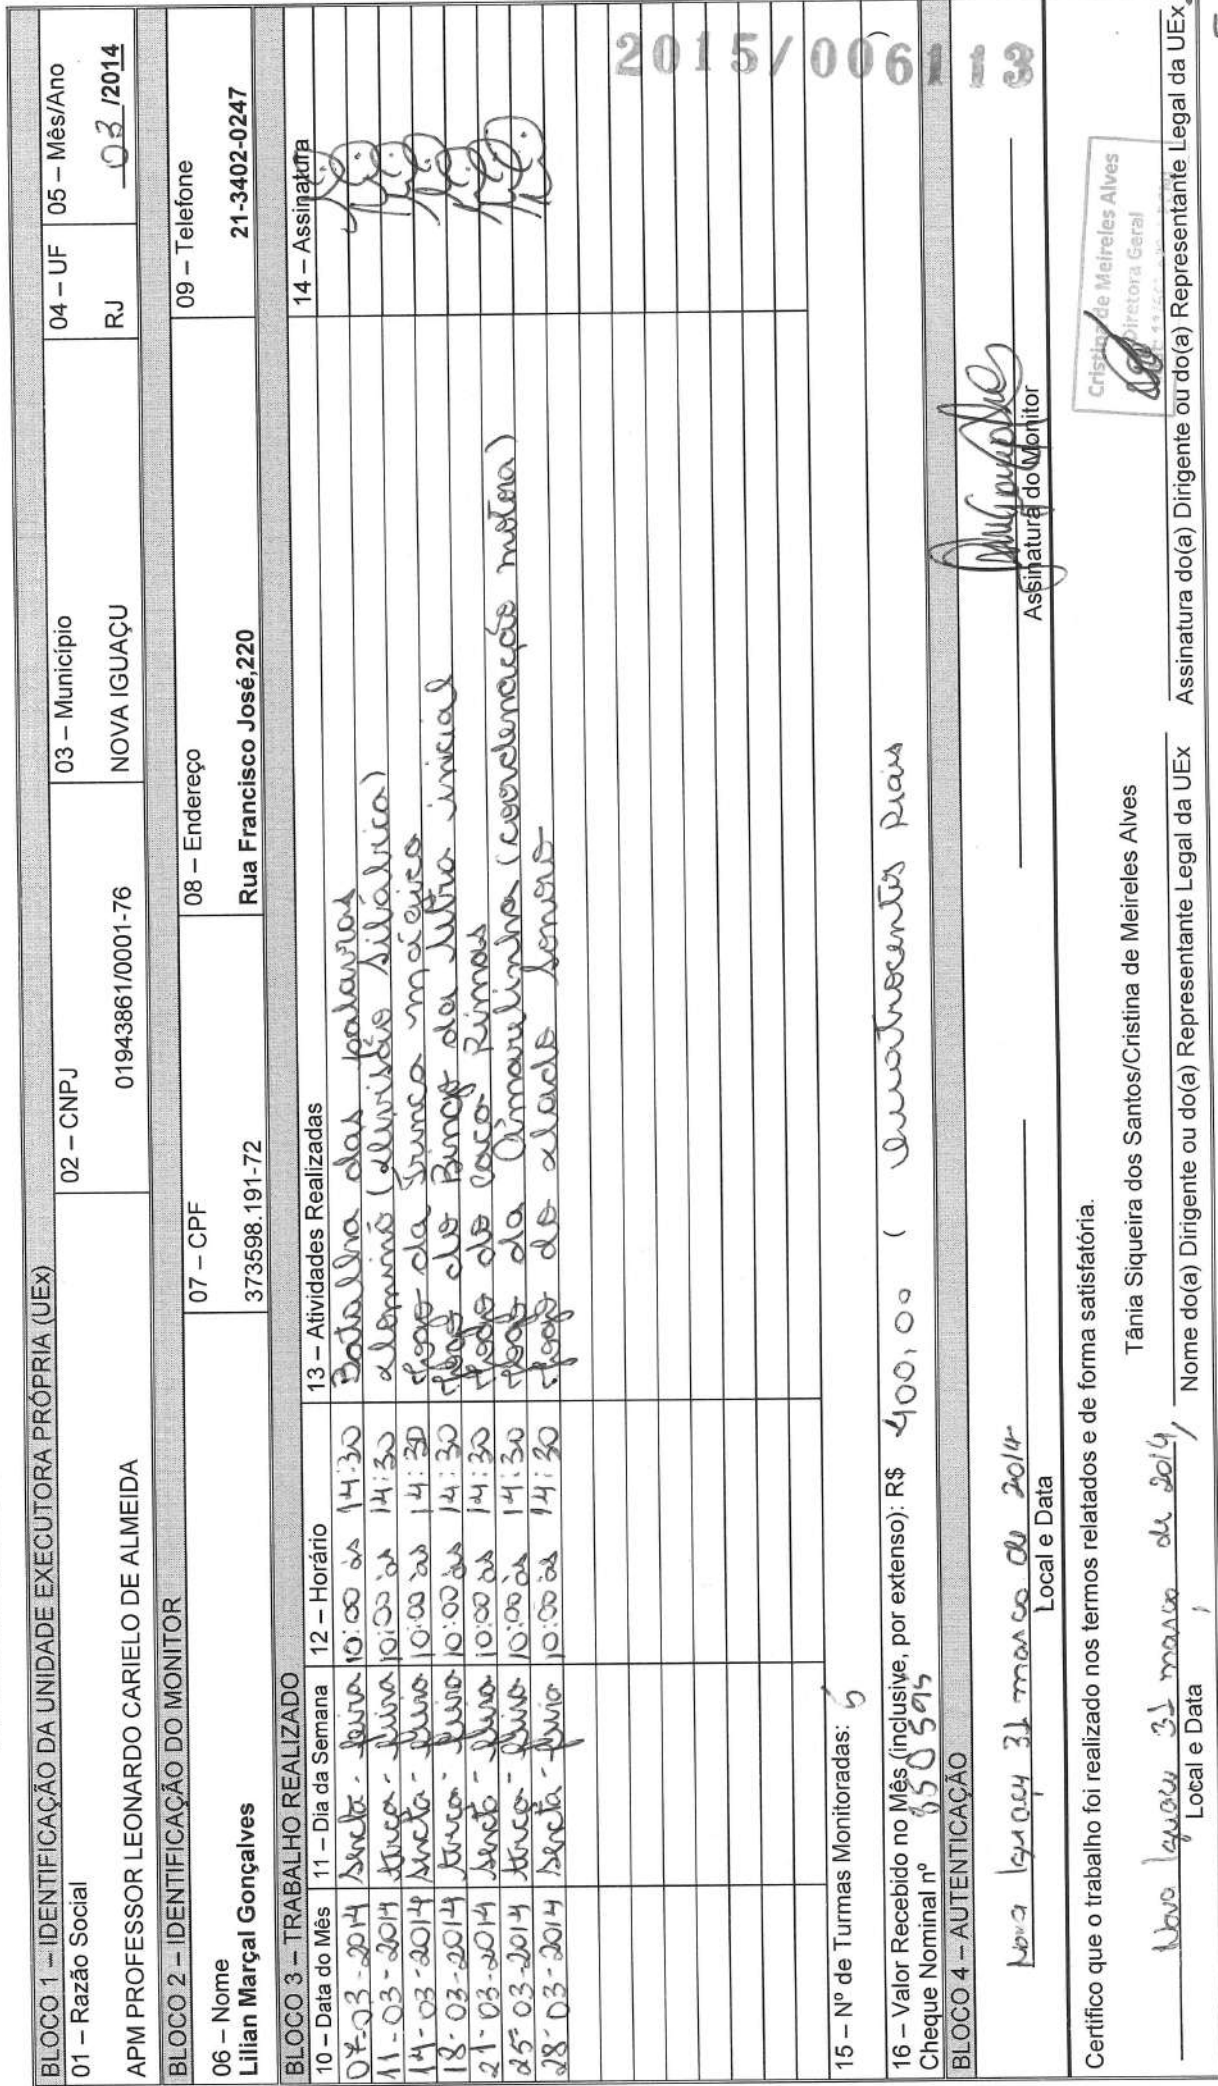 BLOCO 1 – IDENTIFICAÇÃO DA UNIDADE EXECUTORA PRÓPRIA (UEx)
01 – Razão Social
APM PROFESSOR LEONARDO CARIELO DE ALMEIDA
02 – CNPJ
01943861/0001-76
03 – Município
NOVA IGUAÇU
04 – UF
RJ
05 – Mês/Ano
03/2014
BLOCO 2 – IDENTIFICAÇÃO DO MONITOR
06 – Nome
Lilian Marçal Gonçalves
07 – CPF
373598.191-72
08 – Endereço
Rua Francisco José,220
09 – Telefone
21-3402-0247
BLOCO 3 – TRABALHO REALIZADO
10 – Data do Mês 11 – Dia da Semana 12 – Horário 13 – Atividades Realizadas 14 – Assinatura
07-03-2014 sexta-feira 10:00 às 14:30 Batalha das palavras
11-03-2014 terça-feira 10:00 às 14:30 dominó (divisão silábica)
14-03-2014 sexta-feira 10:00 às 14:30 Jogo da Trinca mágica
18-03-2014 terça-feira 10:00 às 14:30 Jogo do Bingo da letra inicial
21-03-2014 sexta-feira 10:00 às 14:30 Jogo do Caça Rimas
25-03-2014 terça-feira 10:00 às 14:30 Jogo da Amarelinha (coordenação motora)
28-03-2014 sexta-feira 10:00 às 14:30 Jogo do dado sonoro
2015/0061
3
15 – Nº de Turmas Monitoradas: 5
16 – Valor Recebido no Mês (inclusive, por extenso): R$ 400,00 ( quatrocentos Reais
Cheque Nominal nº 850595
BLOCO 4 – AUTENTICAÇÃO
Nova Iguaçu 31 março de 2014
Local e Data
Assinatura do Monitor
Certifico que o trabalho foi realizado nos termos relatados e de forma satisfatória.
Cristina de Meireles Alves
Diretora Geral
Nova Iguaçu 31 março de 2014
Local e Data
Tânia Siqueira dos Santos/Cristina de Meireles Alves
Nome do(a) Dirigente ou do(a) Representante Legal da UEx
Assinatura do(a) Dirigente ou do(a) Representante Legal da UEx